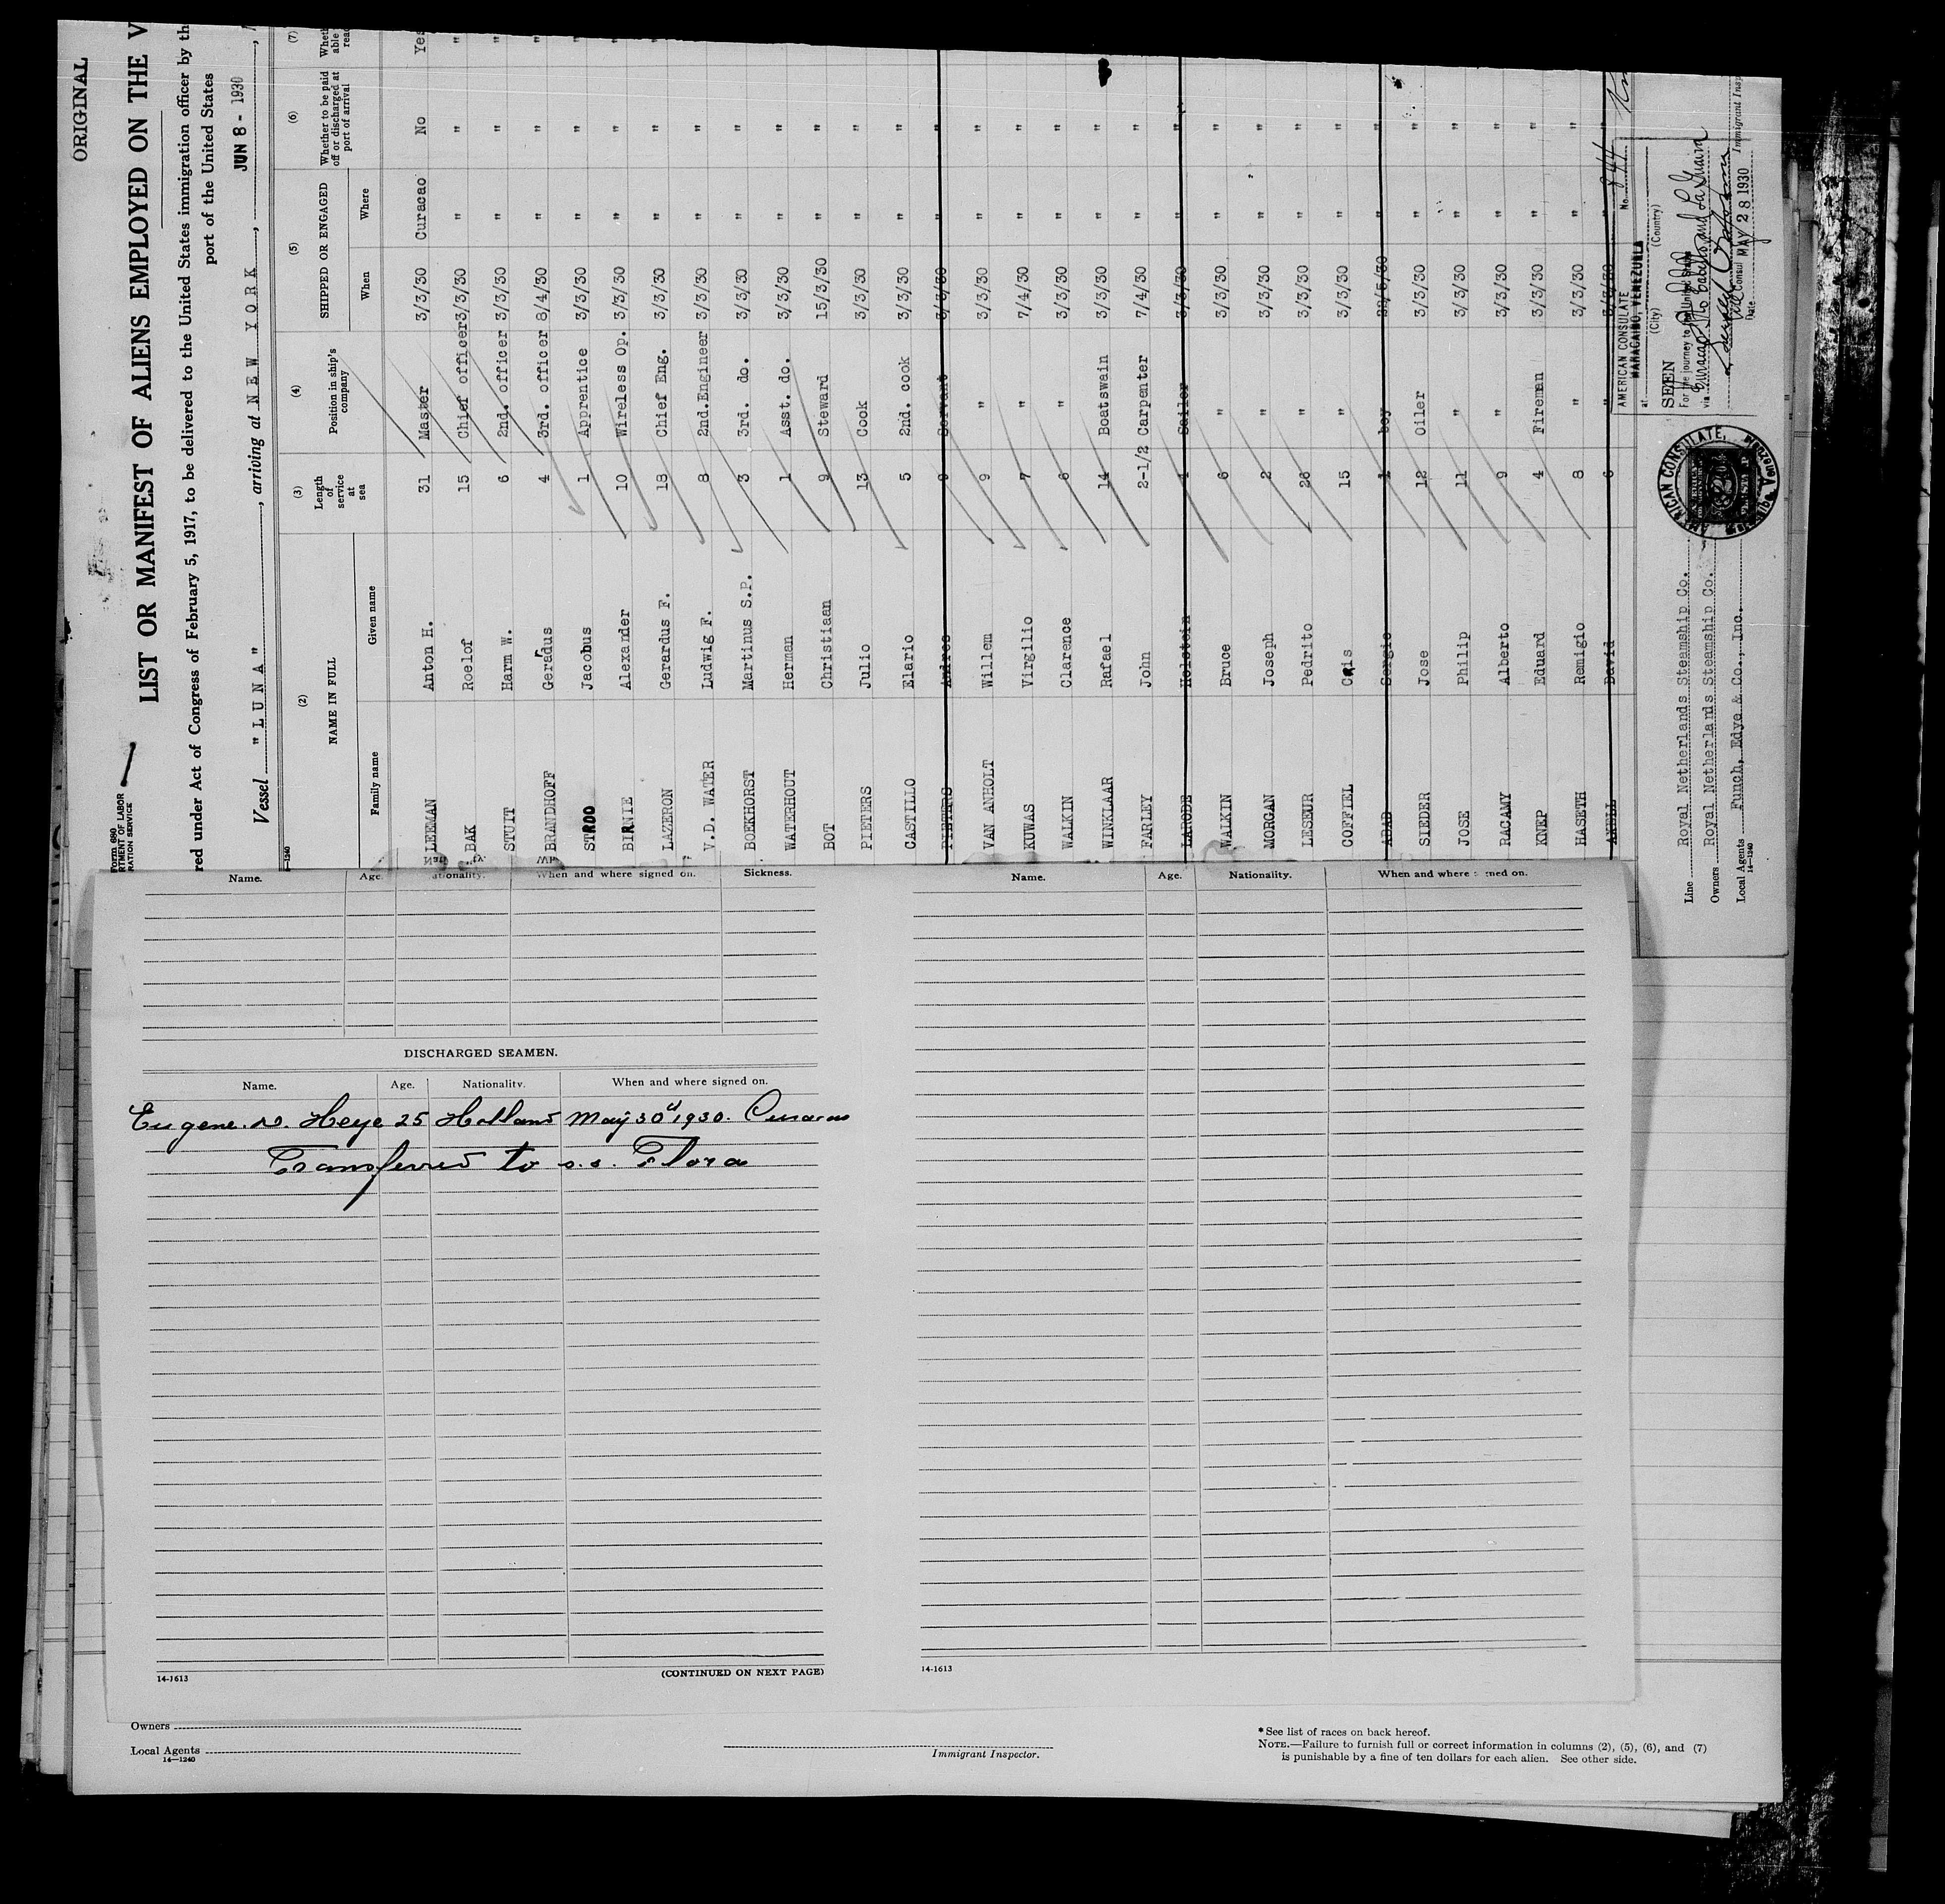 ORIGINAL
Form 680
RTMENT OF LABOR
RATION SERVICE
LIST OR MANIFEST OF ALIENS EMPLOYED ON THE V
red under Act of Congress of February 5, 1917, to be delivered to the United States immigration officer by th
port of the United States
Vessel "LUNA", arriving at NEW YORK, JUN 8 - 1930
14-1240
(2) (3) (4) (5) (6) (7)
NAME IN FULL Length of service at sea Position in ship's company SHIPPED OR ENGAGED Whether to be paid off or discharged at port of arrival
Family name Given name When Where
LEEMAN Anton H. 31 Master 3/3/30 Curacao No Yes
BAK Roelof 15 Chief officer 3/3/30 " " "
STUIT Harm W. 6 2nd. officer 3/3/30 " " "
BRANDHOFF Gerardus 4 3rd. officer 8/4/30 " " "
STROO Jacobus 1 Apprentice 3/3/30 " " "
BIRNIE Alexander 10 Wireless Op. 3/3/30 " " "
LAZERON Gerardus F. 18 Chief Eng. 3/3/30 " " "
V.D. WATER Ludwig F. 8 2nd.Engineer 3/3/30 " "
BOEKHORST Martinus S.P. 3 3rd. do. 3/3/30 " "
WATERHOUT Herman 1 Asst. do. 3/3/30 " "
BOT Christiaan 9 Steward 15/3/30 " "
PIETERS Julio 13 Cook 3/3/30 " "
CASTILLO Elario 5 2nd. cook 3/3/30 " "
PIETERS Andres 9 Servant 3/3/30 " "
VAN ANHOLT Willem 9 " 3/3/30 " "
KUWAS Virgilio 7 " 7/4/30 " "
WALKIN Clarence 6 " 3/3/30 " "
WINKLAAR Rafael 14 Boatswain 3/3/30 " "
FARLEY John 2-1/2 Carpenter 7/4/30 " "
LARODE Holstein 1 Sailor 3/3/30 " "
WALKIN Bruce 6 " 3/3/30 " "
MORGAN Joseph 2 " 3/3/30 " "
LESEUR Pedrito 26 " 3/3/30 " "
COFFIEL Cris 15 " 3/3/30 " "
ABAD Sergio 1 boy 22/5/30 " "
SIEDER Jose 12 Oiler 3/3/30 " "
JOSE Philip 11 " 3/3/30 " "
RACAMY Alberto 9 " 3/3/30 " "
KNEP Eduard 4 Fireman 3/3/30 " "
HASETH Remigio 8 " 3/3/30 " "
David 6 " 3/3/30 " "
Line Royal Netherlands Steamship Co.
Owners Royal Netherlands Steamship Co.
Local Agents Funch, Edye & Co., Inc.
14-1240
AMERICAN CONSULATE No. 844
at MARACAIBO, VENEZUELA
(City) (Country)
SEEN
For the journey to the United States
via Curacao, Pto Cabello and La Guaira
Vice Consul
Date MAY 28 1930
Immigrant Insp
AMERICAN CONSULATE,
Name. Age. ationality. When and where signed on. Sickness.
Name. Age. Nationality. When and where signed on.
DISCHARGED SEAMEN.
Name. Age. Nationality. When and where signed on.
Eugene. Heye 25 Holland May 30d 1930. Curacao
Transferred to s.s. Flora
14-1613 (CONTINUED ON NEXT PAGE)
14-1613
Owners
Local Agents
14-1240
Immigrant Inspector.
*See list of races on back hereof.
NOTE.—Failure to furnish full or correct information in columns (2), (5), (6), and (7)
is punishable by a fine of ten dollars for each alien. See other side.